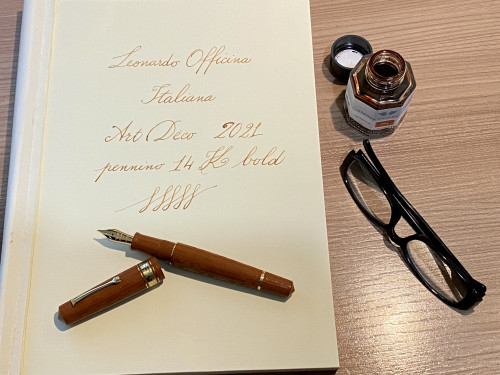 Leonardo Officina
Italiana
Art Deco 2021
pennino 14 K bold